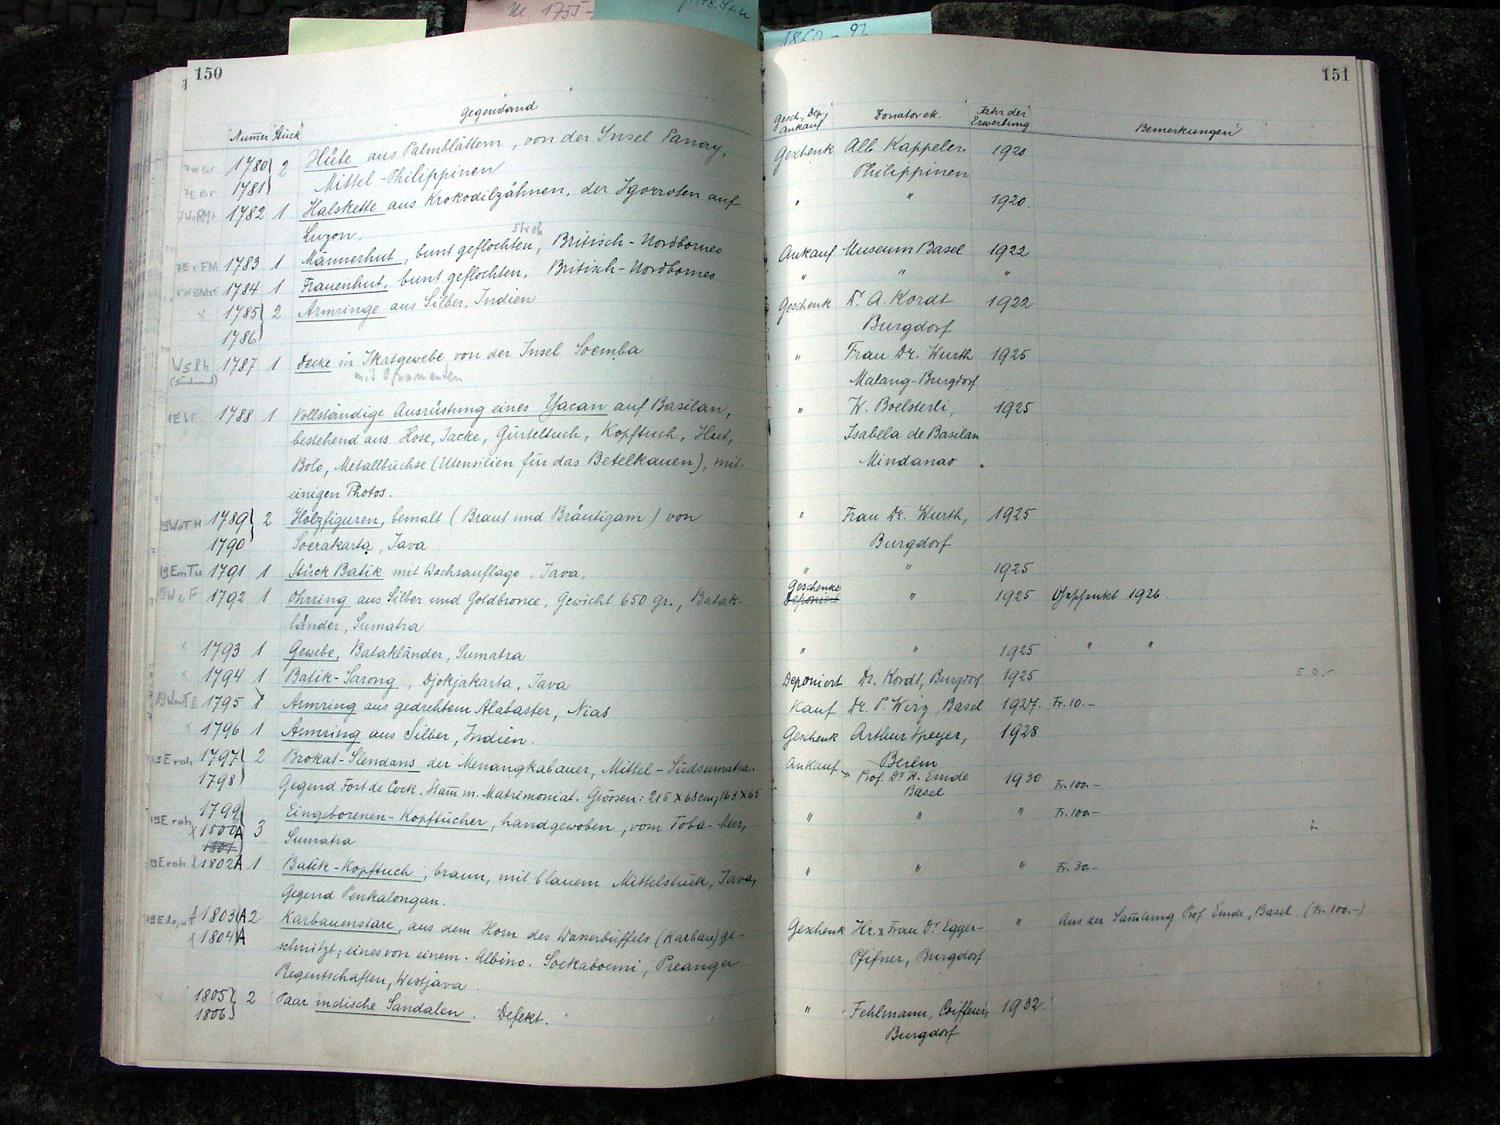 Nr. 1755-
1860-92
150
Gegenstand
Numer Stück
1780 2 Hüte aus Palmblättern, von der Insel Panay,
1781 Mittel-Philippinen
1782 1 Halskette aus Krokodilzähnen, der Igorroten auf
Luzon.
Stroh
1783 1 Männerhut, bunt geflochten, Britisch-Nordborneo
1784 1 Frauenhut, bunt geflochten, Britisch-Nordborneo
x 1785 2 Armringe aus Silber, Indien
1786
1787 1 Decke in Ikatgewebe von der Insel Soemba
mit Ornamenten
1788 1 Vollständige Ausrüstung eines Yacan auf Basilan,
bestehend aus Hose, Jacke, Gürteltuch, Kopftuch, Hut,
Bolo, Metallbüchse (Utensilien für das Betelkauen), mit
einigen Photos.
1789 2 Holzfiguren, bemalt (Braut und Bräutigam) von
1790 Soerakarta, Java
1791 1 Stück Batik mit Wachsauflage, Java.
1792 1 Ohrring aus Silber und Goldbronce, Gewicht 650 Gr., Batak-
länder, Sumatra
x 1793 1 Gewebe, Batakländer, Sumatra
x 1794 1 Batik-Sarong, Djokjakarta, Java
1795 1 Armring aus gedrehtem Alabaster, Nias
x 1796 1 Armring aus Silber, Indien.
1797 2 Brokat-Slendans der Menangkabauer, Mittel-Südsumatra.
1798 Gegend Fort de Cock. Stam̄ m. Matrimoniat. Grössen: 215 x 68 cm; 163 x 65
1799
1800A 3 Eingeborenen-Kopftücher, handgewoben, vom Toba-Meer,
1801 Sumatra
1802A 1 Batik-Kopftuch, braun, mit blauem Mittelstück, Java,
Gegend Penkalongan.
1803A 2 Karbauenstare, aus dem Horn des Wasserbüffels (Karbau) ge-
1804A schnitzt; eines von einem Albino. Soekaboemi, Preanger
Regentschaften, Westjava
x 1805 2 Paar indische Sandalen. Defekt.
1806
151
Gesch., Dep., Ankauf Donator etc. Jahr der Erwerbung Bemerkungen
Geschenk Alb. Kappeler 1920
Philippinen
" " 1920.
Ankauf Museum Basel 1922
" " "
Geschenk Dr. A. Kordt 1922
Burgdorf
" Frau Dr. Wurth 1925
Malang-Burgdorf
" W. Boelsterli, 1925
Isabela de Basilan
Mindanao
" Frau Dr. Wurth, 1925
Burgdorf
" " 1925
Geschenke
Deponiert " 1925 1926
" " 1925 " "
Deponiert Dr. Kordt, Burgdorf 1925 50.-
Kauf Dr. P. Wirz, Basel 1927. Fr. 10.-
Geschenk Arthur Speyer, 1928
Berlin
Ankauf Prof. Dr. H. Emde 1930 Fr. 100.-
Basel
" " " Fr. 100.-
" " " Fr. 30.-
Geschenk Hr. & Frau Dr. Egger- " Aus der Sam̄lung Prof. Emde, Basel (Fr. 100.-)
Pfifner, Burgdorf
" Fehlmann, Coiffeur, 1932.
Burgdorf